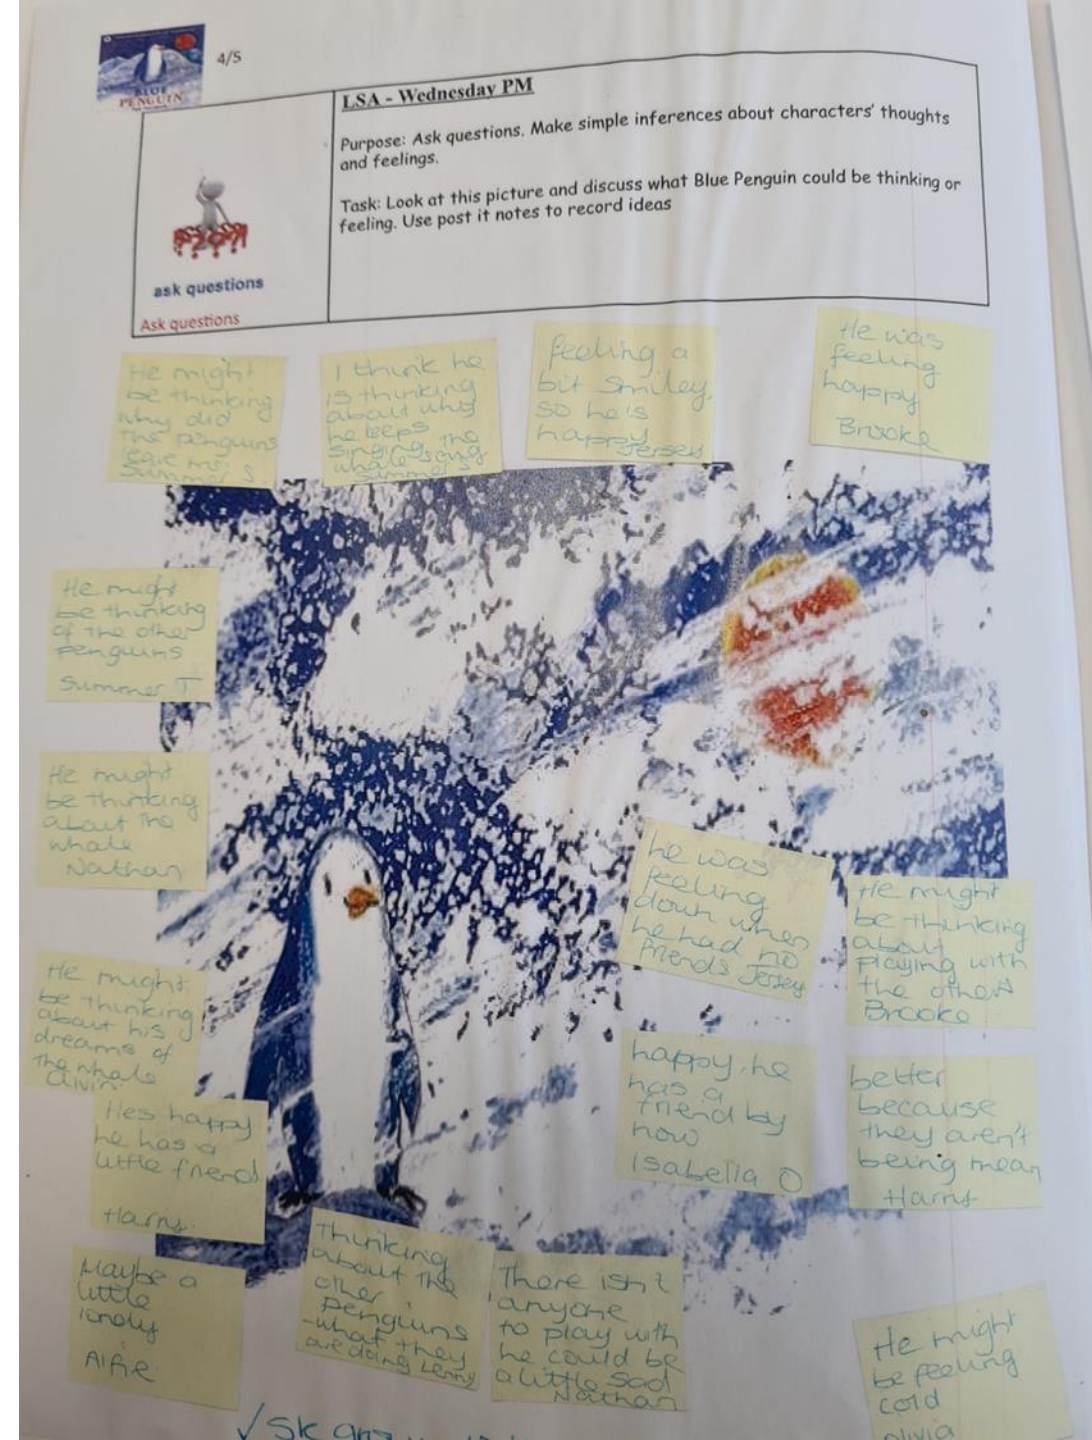 4/5
BLUE
PENGUIN
LSA - Wednesday PM
Purpose: Ask questions. Make simple inferences about characters' thoughts
and feelings.
Task: Look at this picture and discuss what Blue Penguin could be thinking or
feeling. Use post it notes to record ideas
ask questions
Ask questions
He might
be thinking
why did
the penguins
leave me.
Summer S
I think he
is thinking
about why
he keeps
singing the
whale song
Summer S
feeling a
bit smiley,
so he's
happy
Jersey
He was
feeling
happy
Brooke
He might
be thinking
of the other
penguins
Summer T
He might
be thinking
about the
whale
Nathan
he was
feeling
down when
he had no
friends Jersey
He might
be thinking
about
playing with
the others
Brooke
He might
be thinking
about his
dreams of
the whale
Hes happy
he has a
little friend
Harry
happy, he
has a
friend by
now
Isabella O
better
because
they aren't
being mean
Harry
Maybe a
little
lonely
Alfie
Thinking
about the
other
penguins
-what they
are doing Lenny
There isn't
anyone
to play with
he could be
a little sad
Nathan
He might
be feeling
cold
olivia